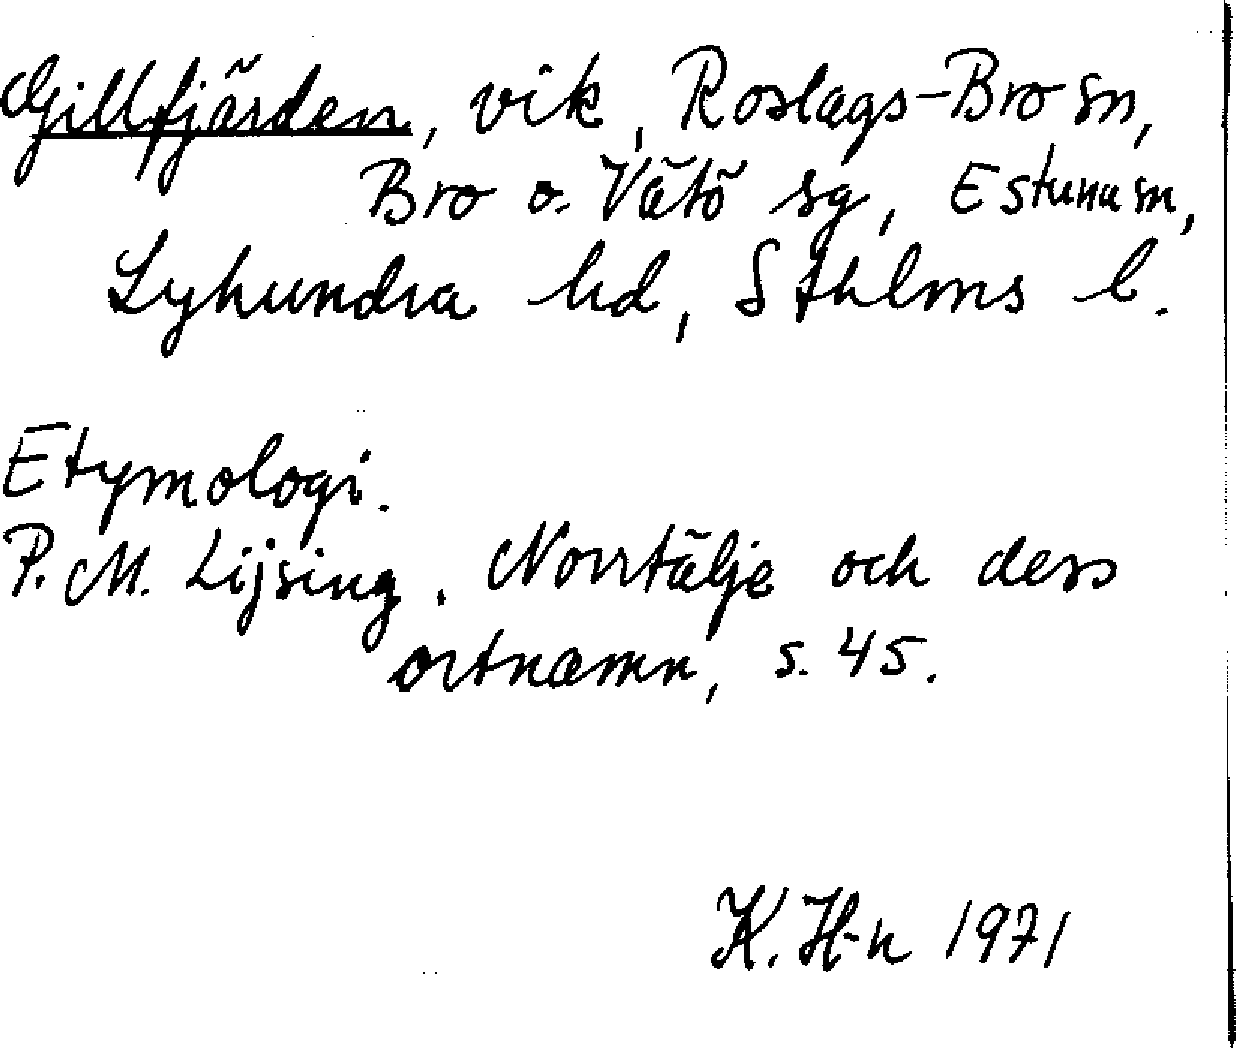 Gillfjärden, vik, Roslags-Bro sn,
Bro o. Vätö sg, Estuna sn,
Lyhundra hd, Sthlms l.
Etymologi.
P. M. Lijsing, Norrtälje och dess
ortnamn, s. 45.
K. H-n 1971